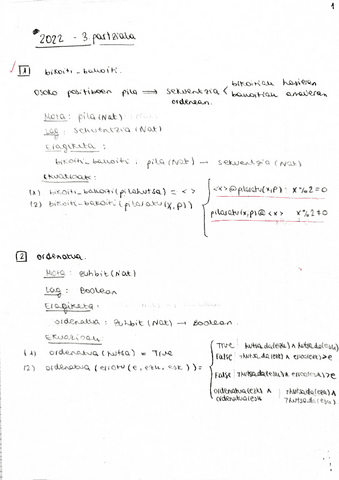 1
*2022 - 3. partziala
1 bikoiti-bakoiti.
osoko positiboen pila → sekuentzia < bikoitiak hasieran
bakoitiak amaieran
ordenean.
Mota: pila(Nat)
Lag: sekuentzia(Nat)
Eragiketa:
bikoiti-bakoiti: pila(Nat) → sekuentzia(Nat)
Ekuazioak:
(1) bikoiti-bakoiti(pilahutsa) = < >
(2) bikoiti-bakoiti(pilaratu(x,p))
<x>@pilaratu(x,p) : x%2=0
pilaratu(x,p)@<x> x%2≠0
2 ordenatua.
Mota: zuhbit(Nat)
Lag: Boolean
Eragiketa:
ordenatua: zuhbit(Nat) → Boolean.
Ekuazioak:
(1) ordenatua(hutsa) = True
(2) ordenatua(errotu(e, ezk, esk)) =
True hutsa_da(ezk) ∧ hutsa_da(esk)
False
False
ordenatua(ezk) ∧
ordenatua(esk)